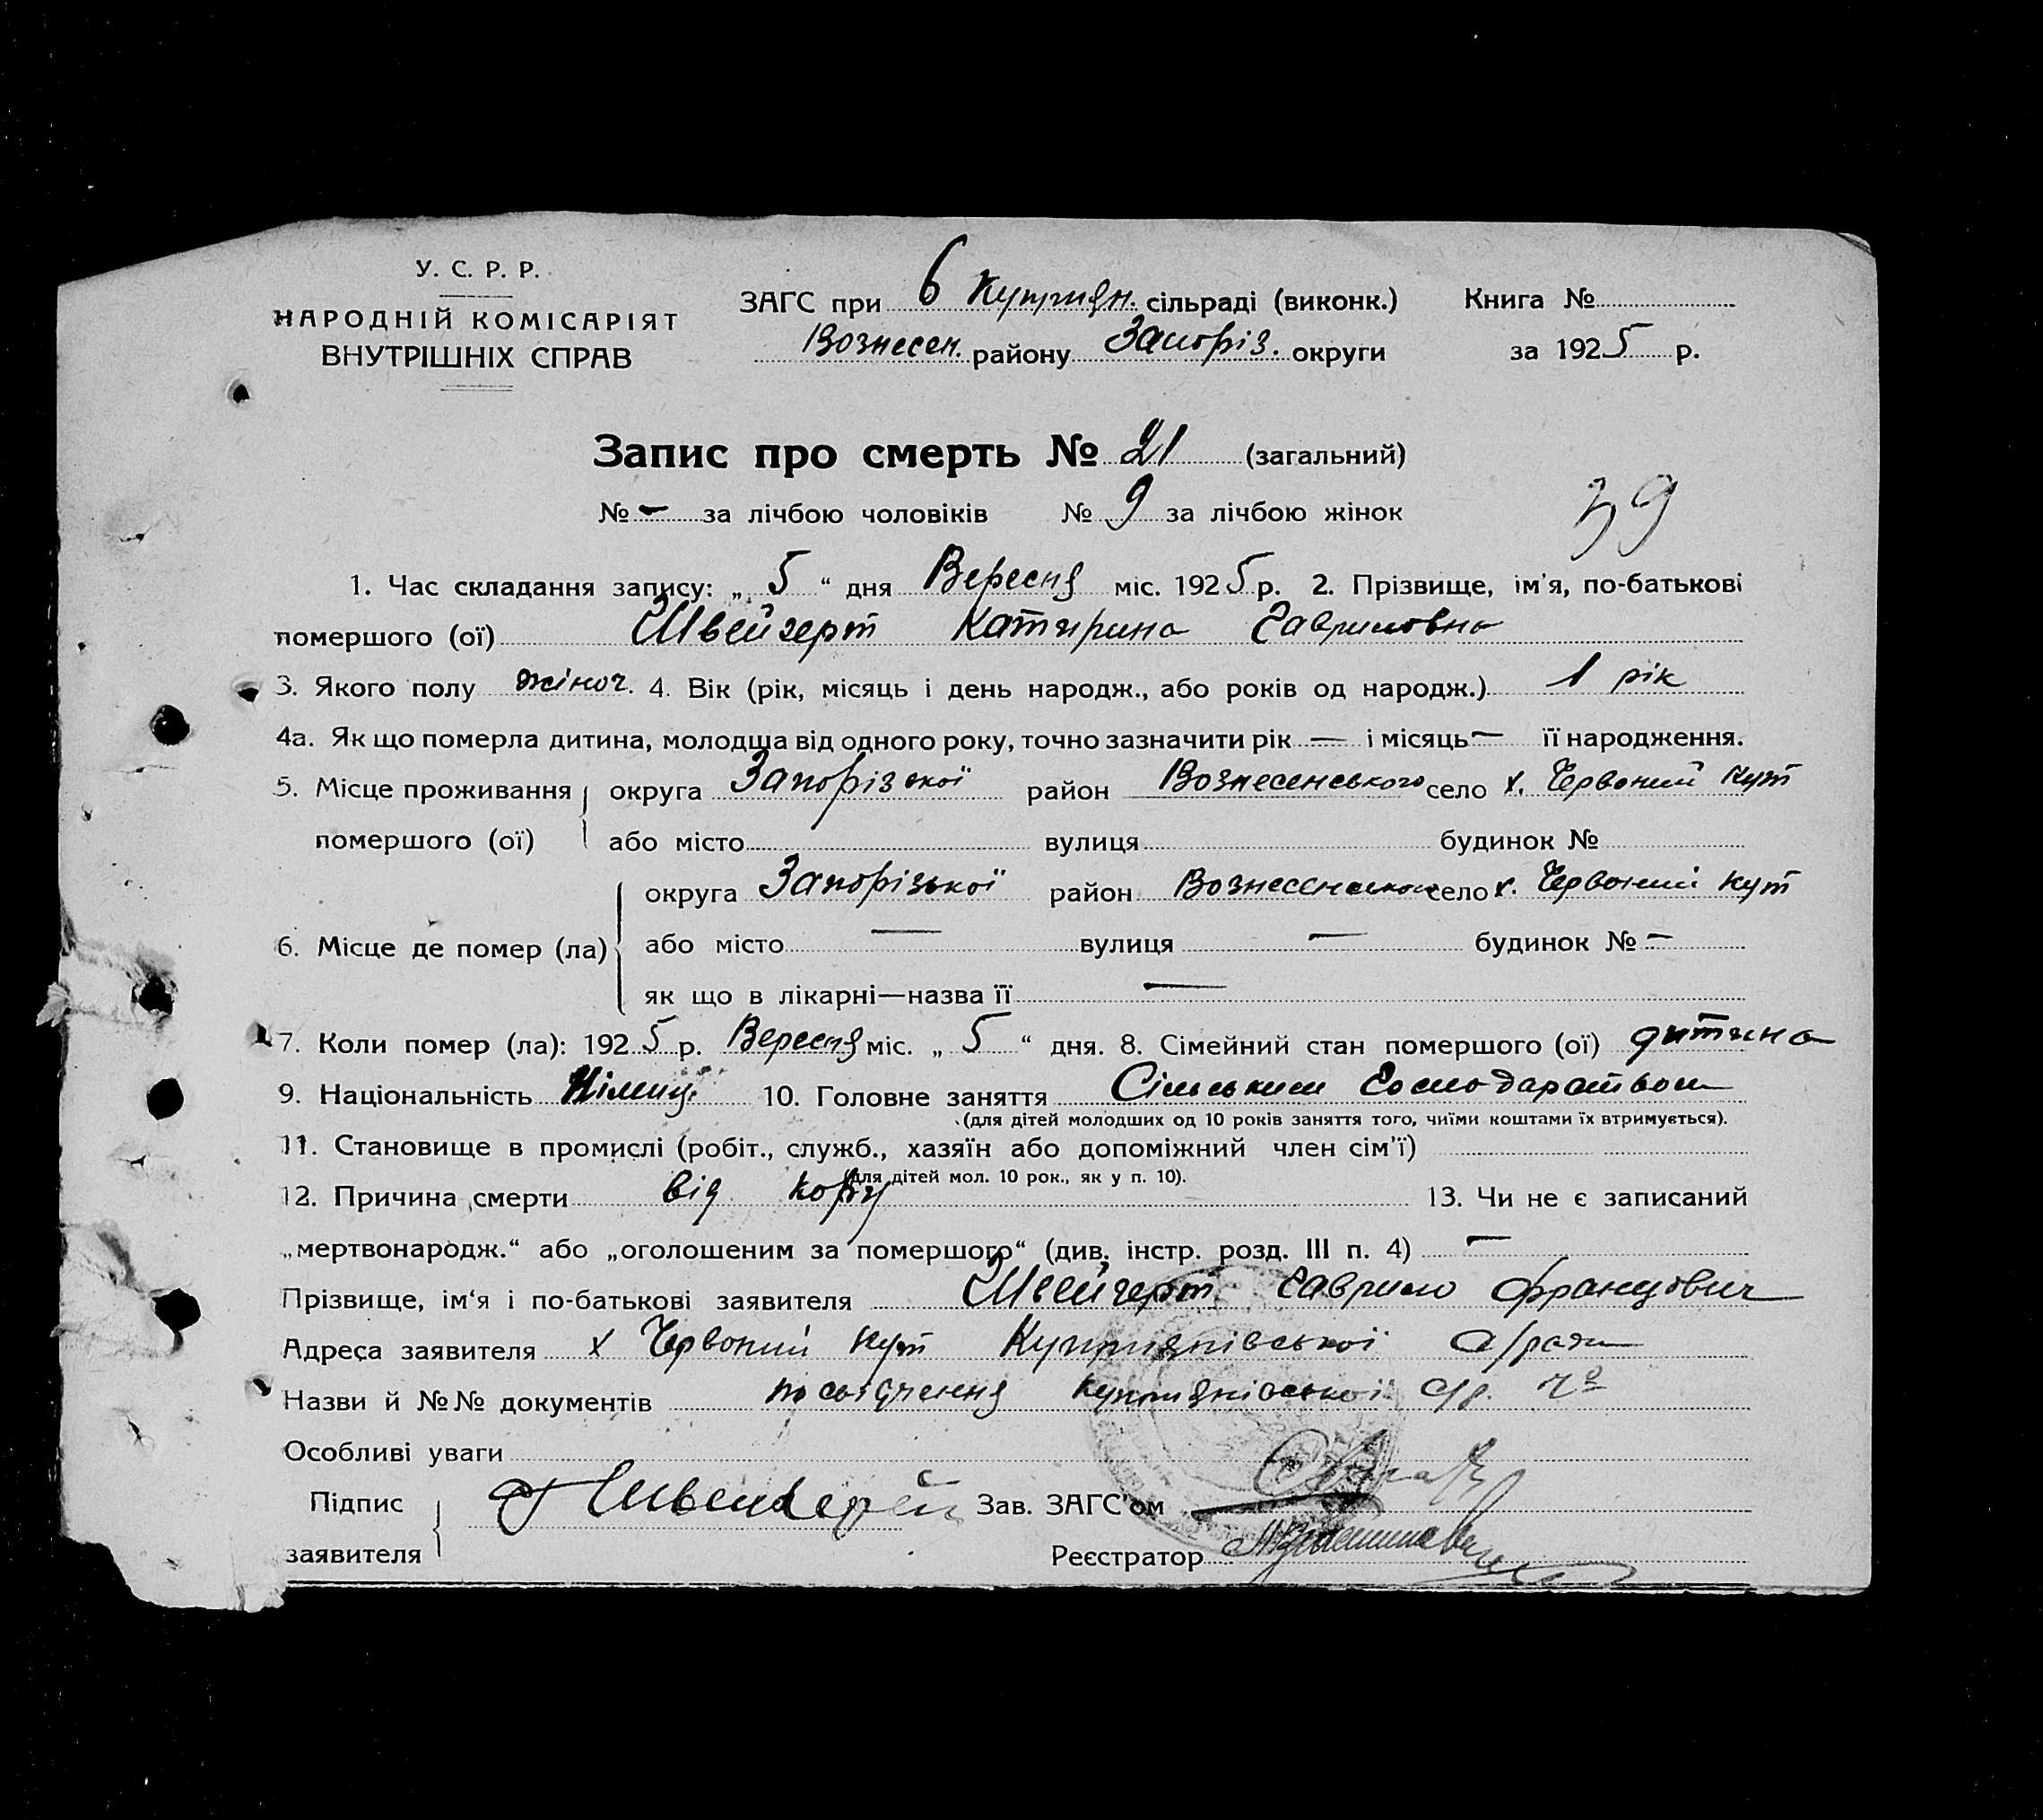 У. С. Р. Р.
НАРОДНІЙ КОМІСАРІЯТ
ВНУТРІШНІХ СПРАВ
ЗАГС при б Куприян. сільраді (виконк.) Книга №
Вознесен. району Запоріз. округи за 1925 р.
Запис про смерть № 21 (загальний)
№ — за лічбою чоловіків № 9 за лічбою жінок
39
1. Час складання запису: „ 5 “ дня Вересня міс. 1925 р. 2. Прізвище, ім'я, по-батькові
помершого (ої) Швейгерт Катирина Гавриловна
3. Якого полу жіноч. 4. Вік (рік, місяць і день народж., або років од народж.) 1 рік
4а. Як що померла дитина, молодша від одного року, точно зазначити рік — і місяць — її народження.
5. Місце проживання округа Запорізької район Вознесенського село х. Червоний Кут
помершого (ої) або місто вулиця будинок №
округа Запорізької район Вознесенського село х. Червоний Кут
6. Місце де помер (ла) або місто — вулиця — будинок № —
як що в лікарні—назва її —
7. Коли помер (ла): 1925 р. Вересня міс. „ 5 “ дня. 8. Сімейний стан помершого (ої) дитина
9. Національність Німец. 10. Головне заняття Сільським Господарством
(для дітей молодших од 10 років заняття того, чиїми коштами їх втримується).
11. Становище в промислі (робіт., служб., хазяїн або допоміжний член сім'ї)
(для дітей мол. 10 рок., як у п. 10).
12. Причина смерти від кору 13. Чи не є записаний
„мертвонародж.“ або „оголошеним за помершого“ (див. інстр. розд. III п. 4) —
Прізвище, ім'я і по-батькові заявителя Швейгерт Гаврило Францович
Адреса заявителя х Червоний Кут Куприянівської с/ради
Назви й №№ документів посвідчення Куприянівської с/р.
Особливі уваги
Підпис
заявителя
Зав. ЗАГС'ом
Реєстратор